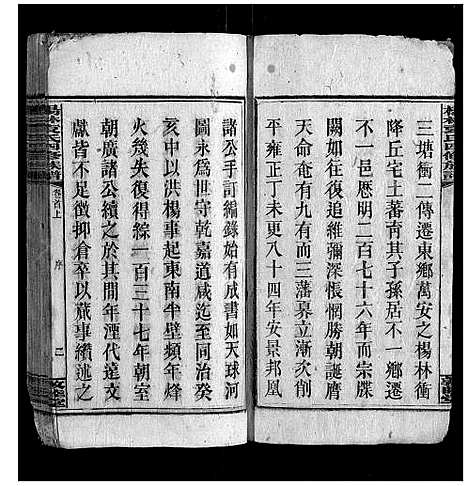 三塘衝二傳遷東鄉萬安之楊林衝
降丘宅土蕃育其子孫居不一鄉遷
不一邑厯明二百七十六年而宗牒
闕如往復追維彌深悵惘勝朝誕膺
天命奄有九有而三藩暴立漸次削
平時丁未更八十四年安景邦凰
諸公手訂編錄始有成書如天球河
圖永爲世守乾嘉道咸迄至同治癸
亥中以洪楊事起東南半壁頻年烽
火幾失復得綜一百三十七年朝室
朝廣諸公續之於其間年湮代遠文
獻皆不足徵抑倉卒以蕆事纘述之
楊林袁氏四修族譜
卷首上
序
二